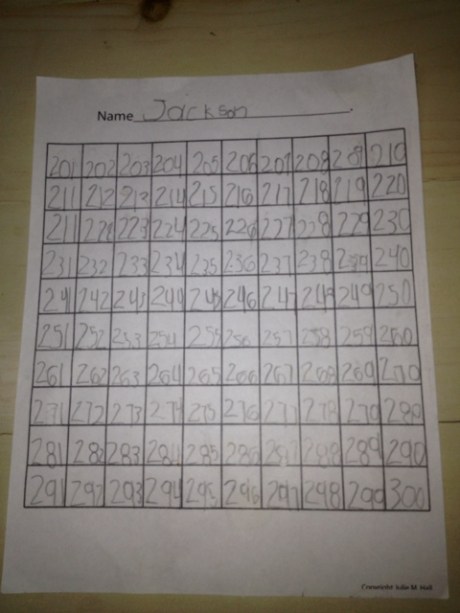 Name Jackson
201 202 203 204 205 206 207 208 209 210
211 212 213 214 215 216 217 218 219 220
211 222 223 224 225 226 227 228 229 230
231 232 233 234 235 236 237 238 239 240
241 242 243 244 245 246 247 248 249 250
251 252 253 254 255 256 257 258 259 260
261 262 263 264 265 266 267 268 269 270
271 272 273 274 275 276 277 278 279 280
281 282 283 284 285 286 287 288 289 290
291 292 293 294 295 296 297 298 299 300
Copyright Julie M.